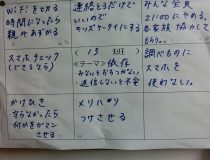 WiFiを切る
時間になったら
親があずかる
連絡とるだけで
いいので
キッズケータイにする
みんな全員
21:00にやめる。
各家族 協力して
もらう。
スマホチェック
(できるなら)
( 13 班)
≪テーマ≫ 依存
調べものに
スマホを
使わない。
かけひき
守らなかったら
何かをがマン
させる
メリハリ
つけさせる